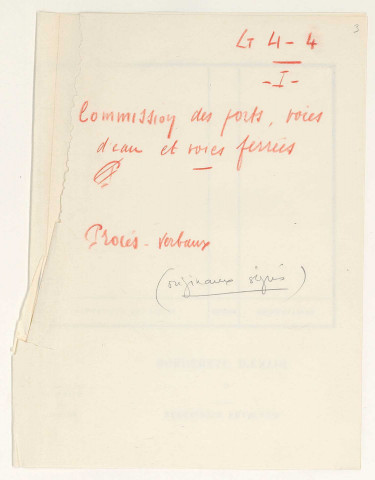 3
LT 4-4
-I-
Commission des ports, voies
d'eau et voies ferrées
Procès-verbaux
(originaux signés)